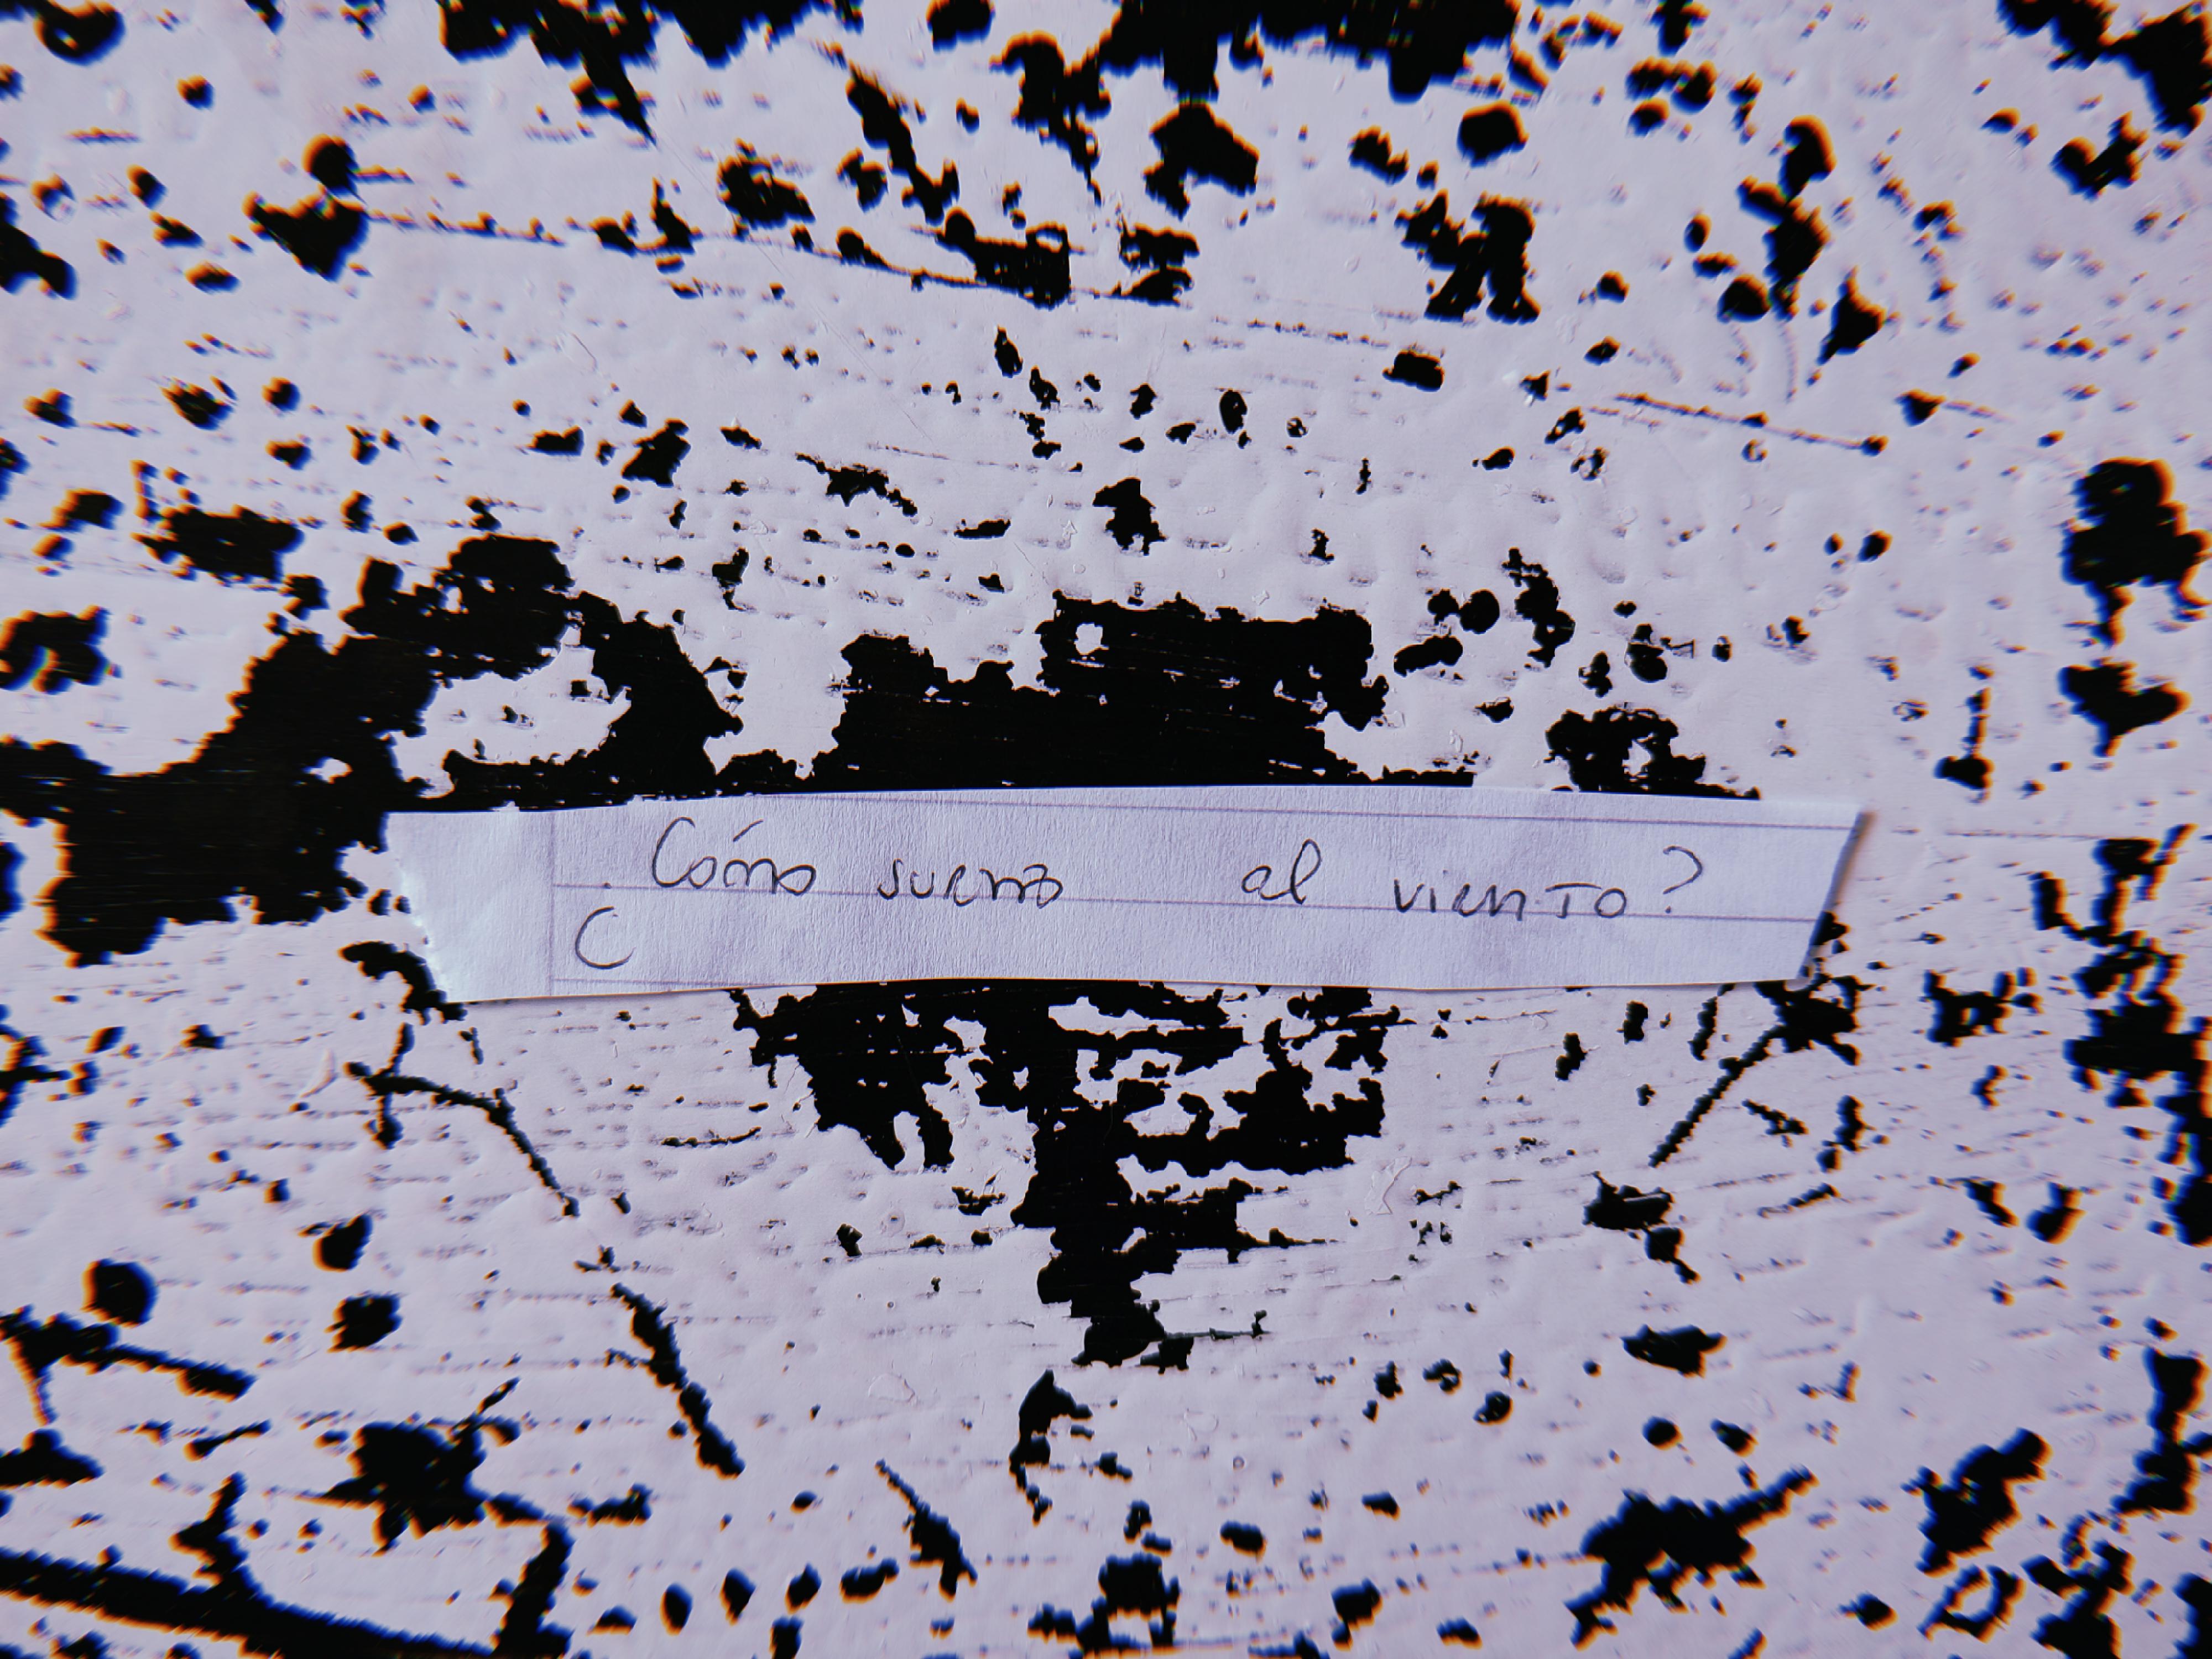 ¿Cómo sueno al viento?